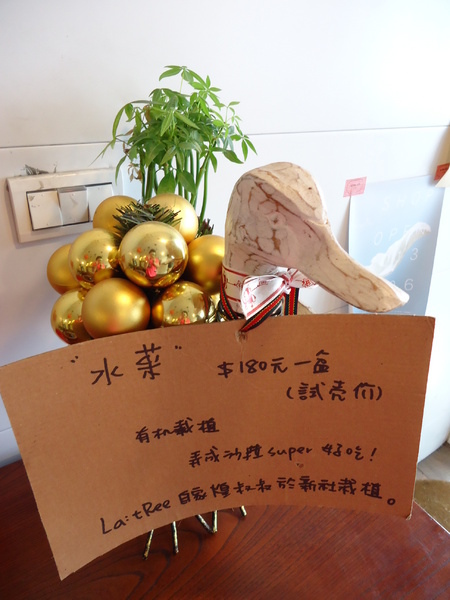 "水菜"
$180元一盒
(試売价)
有机栽植
弄成沙拉super好吃!
La:tRee 自家煌叔叔於新社栽植。